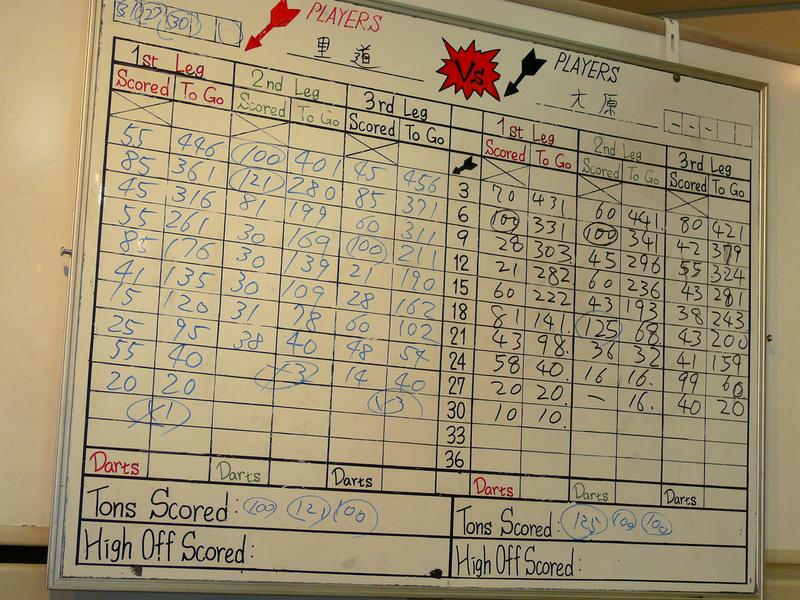 PLAYERS
里道
Vs
PLAYERS
大原
1st Leg 2nd Leg 3rd Leg 1st Leg 2nd Leg 3rd Leg
Scored To Go Scored To Go Scored To Go Scored To Go Scored To Go Scored To Go
55 446 100 401 45 456 3 70 431 60 441 80 421
85 361 121 280 85 371 6 100 331 100 341 42 379
45 316 81 199 60 311 9 28 303 45 296 55 324
55 261 30 169 100 211 12 21 282 60 236 43 281
85 176 30 139 21 190 15 60 222 43 193 38 243
41 135 30 109 28 162 18 81 141 125 68 43 200
15 120 31 78 60 102 21 43 98 36 32 41 159
25 95 38 40 48 54 24 58 40 16 16 99 60
55 40 14 40 27 20 20 - 16 40 20
20 20 30 10 10
33
36
Darts Darts Darts Darts Darts Darts
Tons Scored: 100 121 100
Tons Scored: 125 100 100
High Off Scored:
High Off Scored: